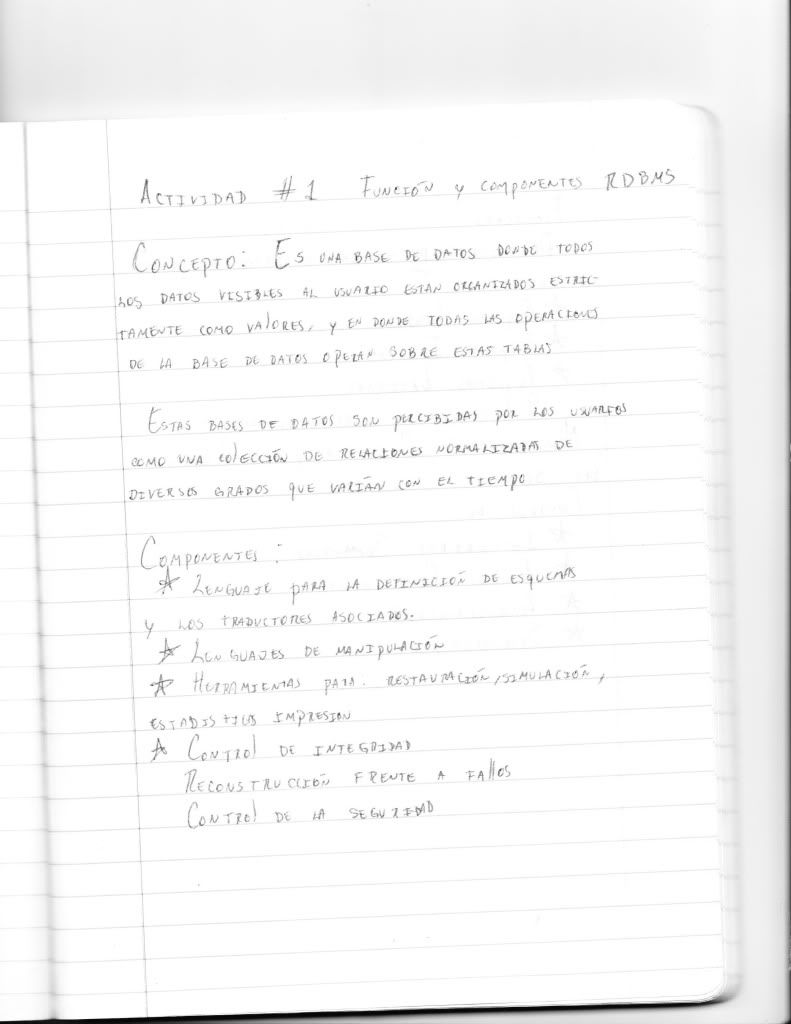 ACTIVIDAD #1 FUNCIÓN Y COMPONENTES RDBMS
CONCEPTO: ES UNA BASE DE DATOS DONDE TODOS
LOS DATOS VISIBLES AL USUARIO ESTAN ORGANIZADOS ESTRIC-
TAMENTE COMO VALORES, Y EN DONDE TODAS LAS OPERACIONES
DE LA BASE DE DATOS OPERAN SOBRE ESTAS TABLAS
ESTAS BASES DE DATOS SON PERCIBIDAS POR LOS USUARIOS
COMO UNA COLECCIÓN DE RELACIONES NORMALIZADAS DE
DIVERSOS GRADOS QUE VARIÁN CON EL TIEMPO
COMPONENTES:
* LENGUAJE PARA LA DEFINICIÓN DE ESQUEMAS
Y LOS TRADUCTORES ASOCIADOS.
* LENGUAJES DE MANIPULACIÓN
* HERRAMIENTAS PARA. RESTAURACIÓN, SIMULACIÓN,
IMPRESION
* CONTROL DE INTEGRIDAD
RECONSTRUCCIÓN FRENTE A FALLOS
CONTROL DE LA SEGURIDAD